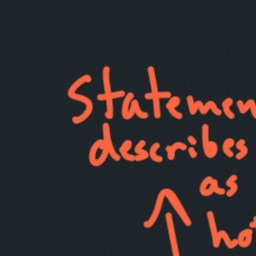 Statemen
describes
as
ho